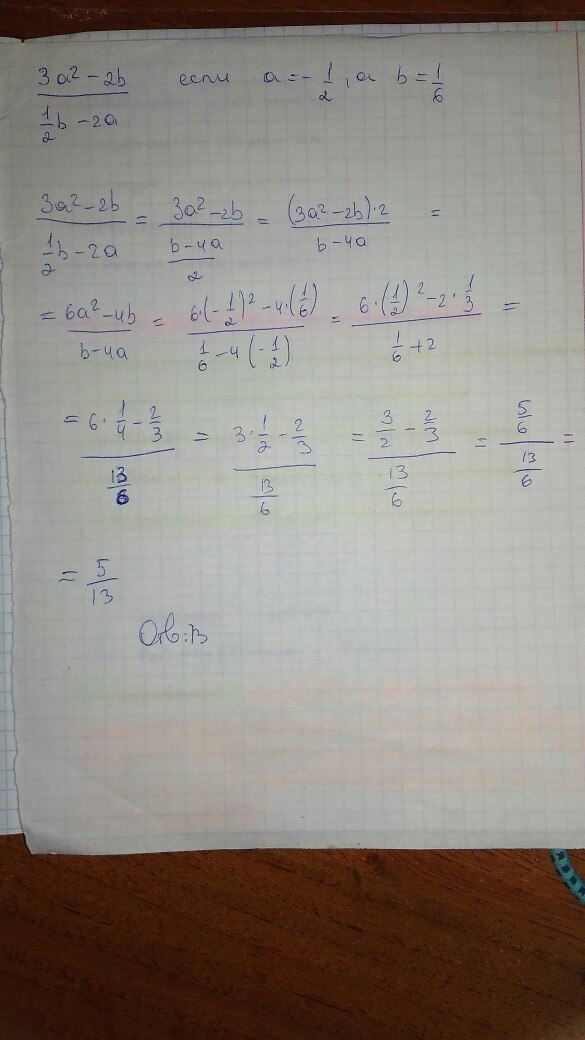 (3a² − 2b)/(1/2 b − 2a) если a = − 1/2, а b = 1/6
(3a² − 2b)/(1/2 b − 2a) = (3a² − 2b)/((b − 4a)/2) = ((3a² − 2b)·2)/(b − 4a) =
= (6a² − 4b)/(b − 4a) = (6·(−1/2)² − 4·(1/6))/(1/6 − 4(−1/2)) = (6·(1/2)² − 2·1/3)/(1/6 + 2) =
= (6·1/4 − 2/3)/(13/6) = (3·1/2 − 2/3)/(13/6) = (3/2 − 2/3)/(13/6) = (5/6)/(13/6) =
= 5/13
Отв: В